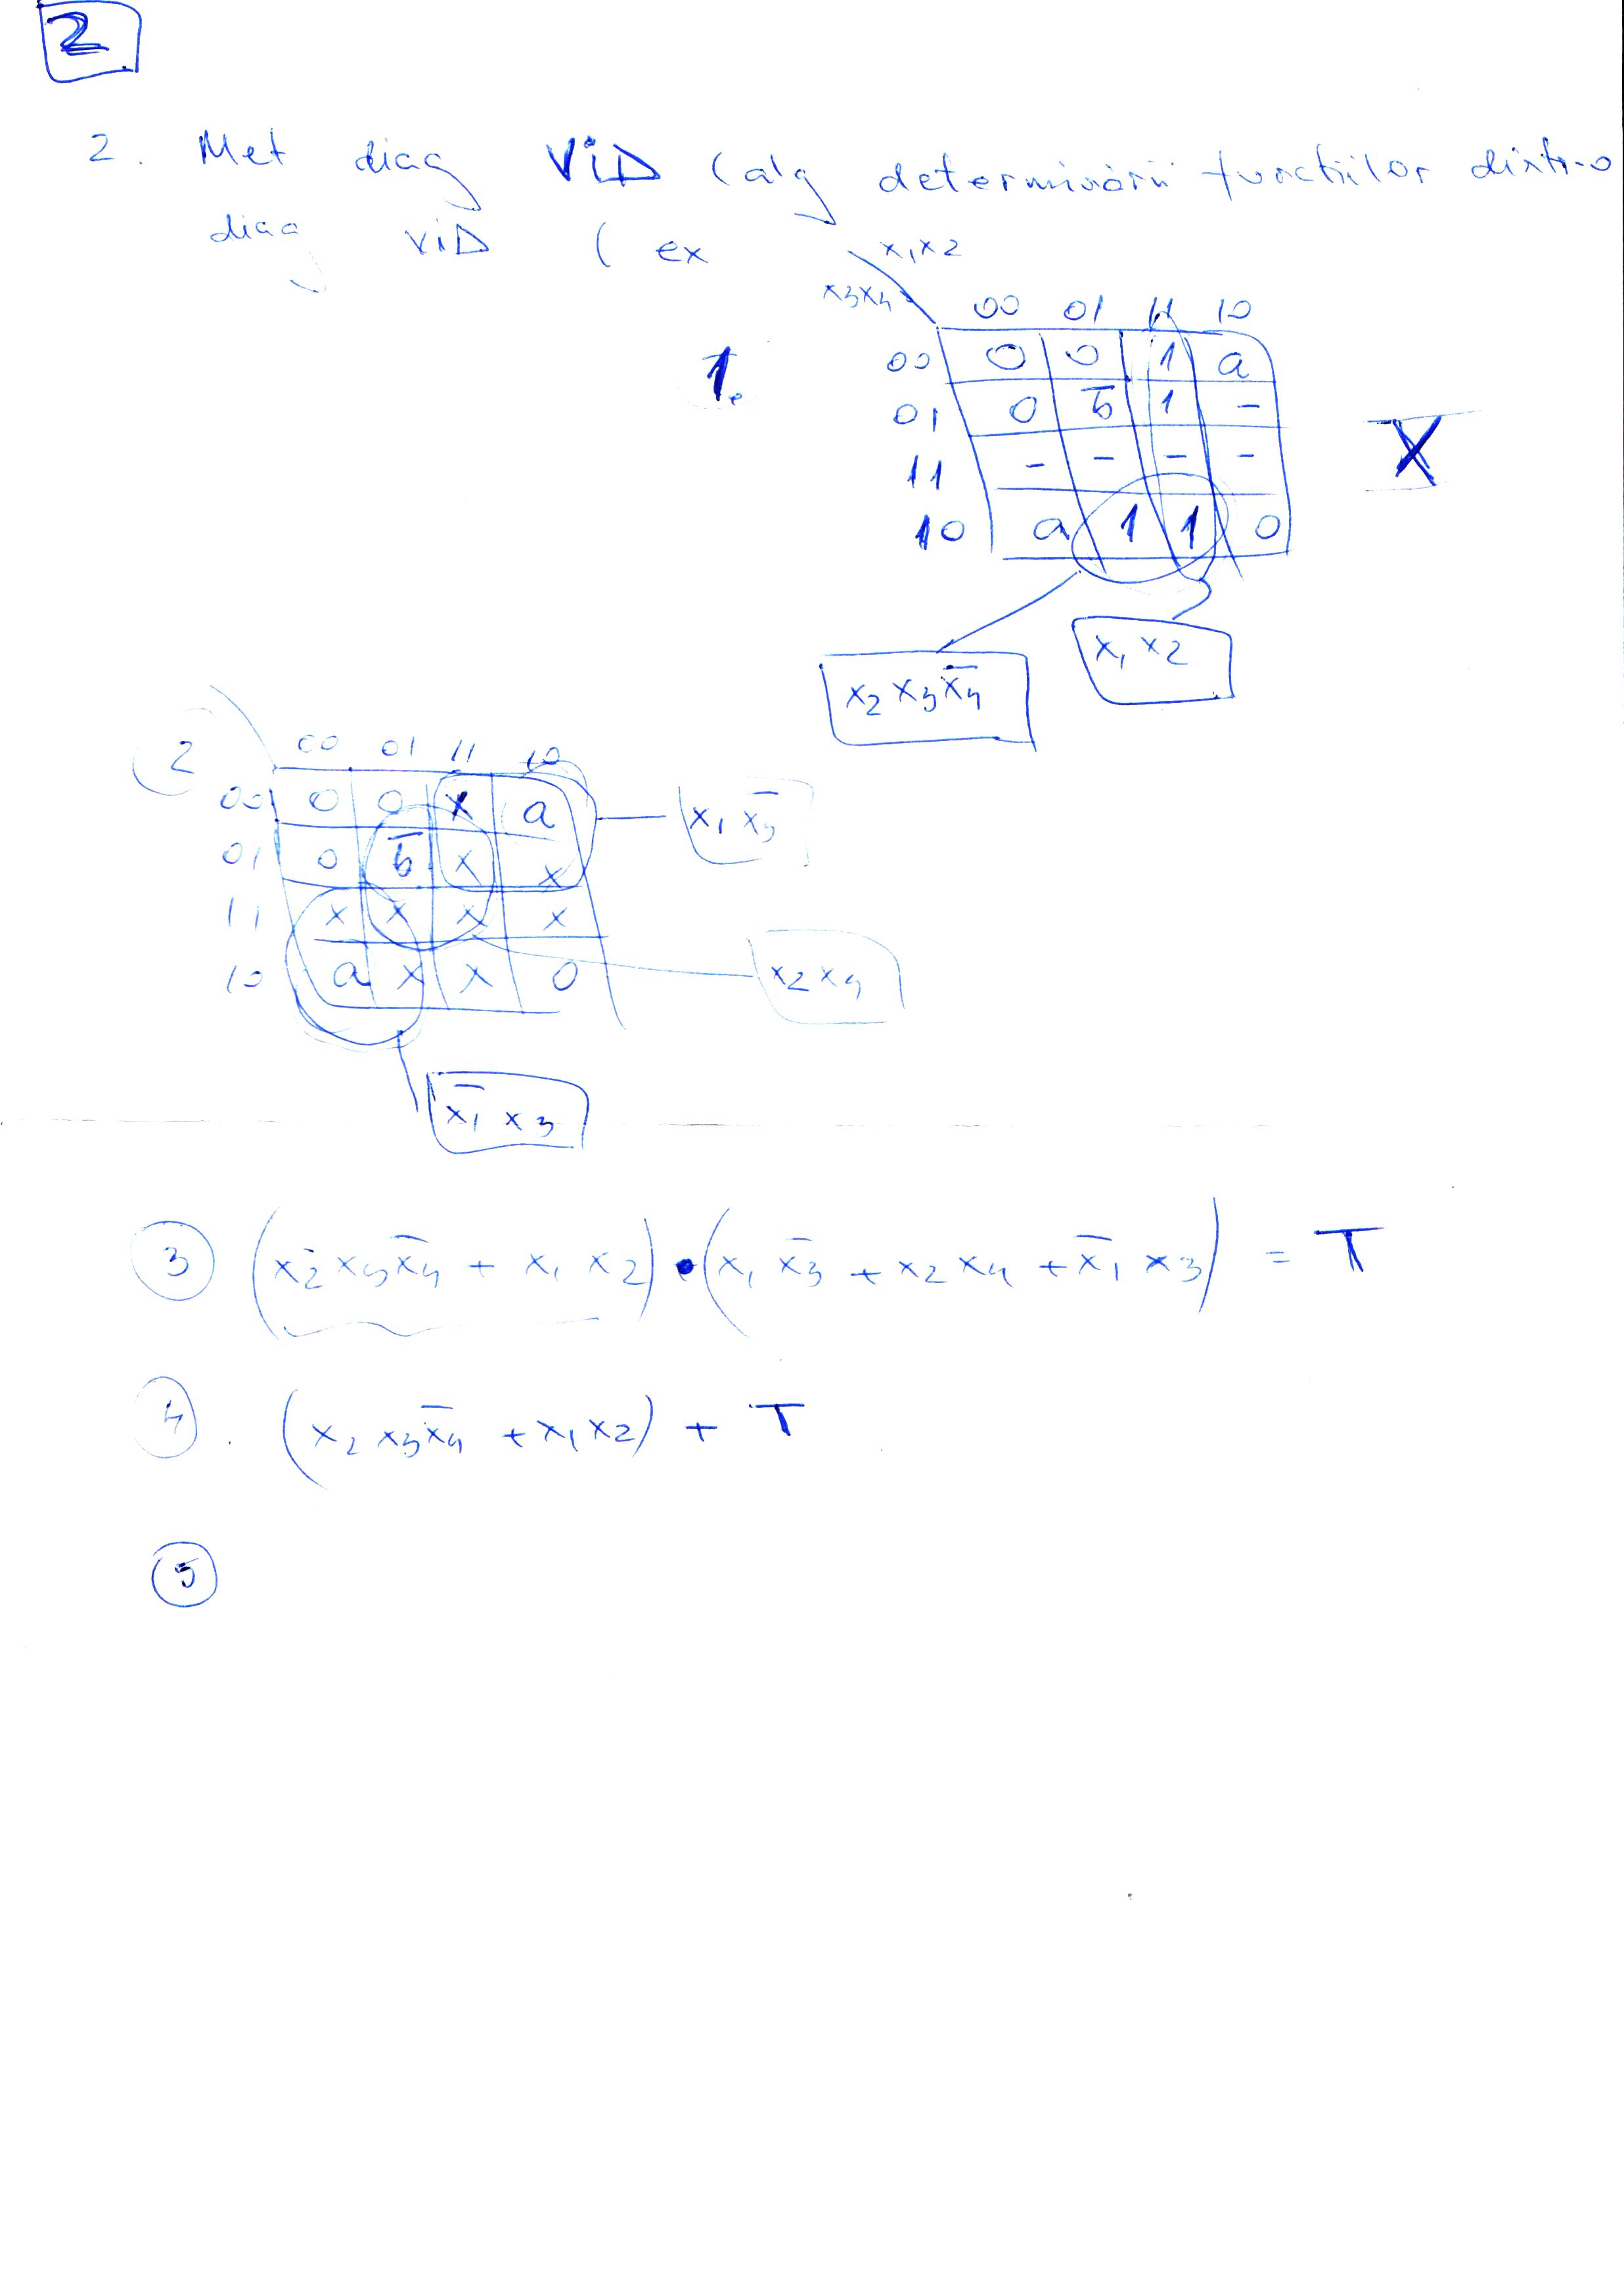 2
2. Met diag ViD (alg determinării funcțiilor dintr-o
diag ViD ( ex
x1x2
x3x4
00 01 11 10
1. 00 0 0 1 a
01 0 b̅ 1 -
11 - - - -
10 a 1 1 0
x1 x2
x2 x3 x̅4
2 00 01 11 10
00 0 0 x a
x1 x̅3
01 0 b̅ x x
11 x x x x
10 a x x 0
x2 x4
x̅1 x3
3 (x2 x3 x̅4 + x1 x2) • (x1 x̅3 + x2 x4 + x̅1 x3) = T
4. (x2 x3 x̅4 + x1 x2) + T
5